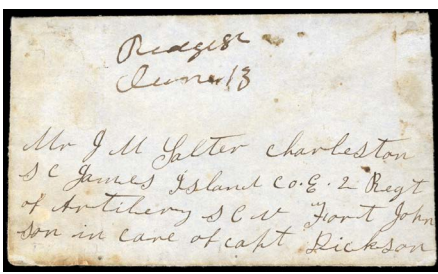 Ridge SC
June 13
Mr J M Salter Charleston
S C James Island Co. E. 2 Regt
of Artilery S C V Fort John
son in care of capt Dickson